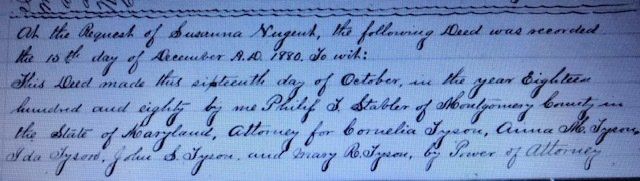 At the Request of Susanna Nugent, the following Deed was recorded
the 15th day of December A.D. 1880. To wit:
This Deed made this sixteenth day of October, in the year Eighteen
hundred and eighty by me Philip T. Stabler of Montgomery County in
the State of Maryland, Attorney for Cornelia Tyson, Anna M. Tyson,
Ida Tyson, John S. Tyson, and Mary R. Tyson, by Power of Attorney